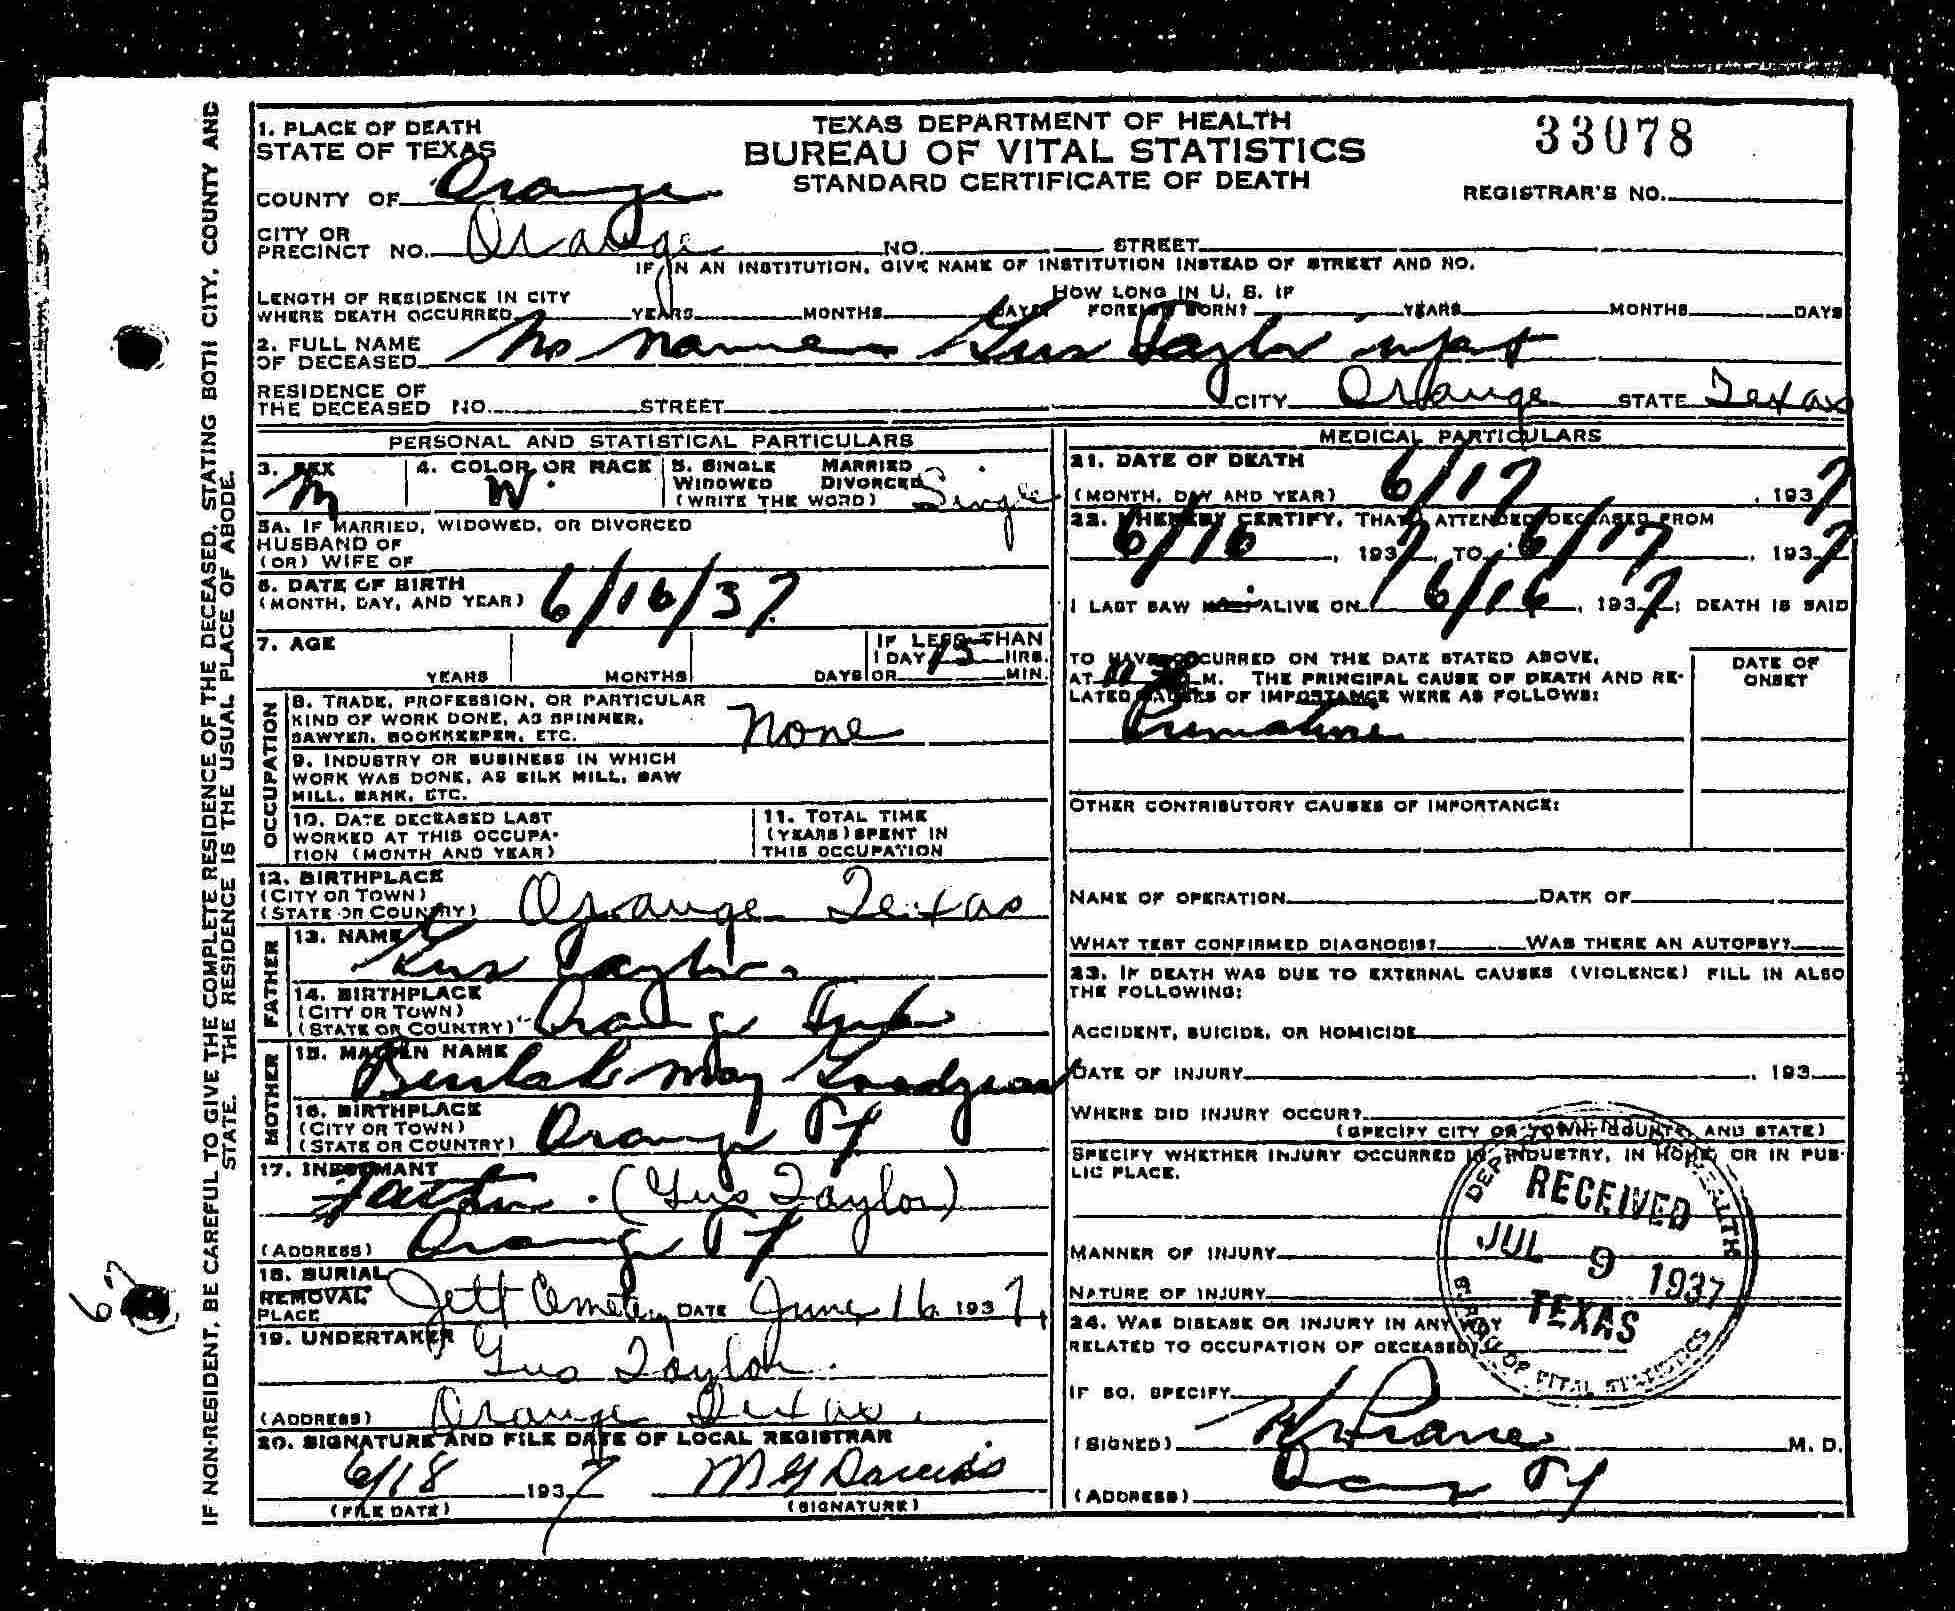 IF NON-RESIDENT, BE CAREFUL TO GIVE THE COMPLETE RESIDENCE OF THE DECEASED, STATING BOTH CITY, COUNTY AND
STATE. THE RESIDENCE IS THE USUAL PLACE OF ABODE.
TEXAS DEPARTMENT OF HEALTH
BUREAU OF VITAL STATISTICS
STANDARD CERTIFICATE OF DEATH
33078
REGISTRAR'S NO.
1. PLACE OF DEATH
STATE OF TEXAS
COUNTY OF Orange
CITY OR
PRECINCT NO. Orange NO. STREET
IF IN AN INSTITUTION, GIVE NAME OF INSTITUTION INSTEAD OF STREET AND NO.
LENGTH OF RESIDENCE IN CITY
WHERE DEATH OCCURRED YEARS MONTHS DAYS
HOW LONG IN U. S. IF
FOREIGN BORN? YEARS MONTHS DAYS
2. FULL NAME
OF DECEASED No name Gus Taylor infant
RESIDENCE OF
THE DECEASED NO. STREET CITY Orange STATE Texas
PERSONAL AND STATISTICAL PARTICULARS
3. SEX M
4. COLOR OR RACE W.
5. SINGLE MARRIED
WIDOWED DIVORCED
(WRITE THE WORD) Single
5A. IF MARRIED, WIDOWED, OR DIVORCED
HUSBAND OF
(OR) WIFE OF
6. DATE OF BIRTH
(MONTH, DAY, AND YEAR) 6/16/37
7. AGE
YEARS MONTHS DAYS
IF LESS THAN
1 DAY 15 HRS.
OR MIN.
OCCUPATION
8. TRADE, PROFESSION, OR PARTICULAR
KIND OF WORK DONE, AS SPINNER,
SAWYER, BOOKKEEPER, ETC. None
9. INDUSTRY OR BUSINESS IN WHICH
WORK WAS DONE, AS SILK MILL, SAW
MILL, BANK, ETC.
10. DATE DECEASED LAST
WORKED AT THIS OCCUPA-
TION (MONTH AND YEAR)
11. TOTAL TIME
(YEARS) SPENT IN
THIS OCCUPATION
12. BIRTHPLACE
(CITY OR TOWN)
(STATE OR COUNTRY) Orange Texas
FATHER
13. NAME Gus Taylor
14. BIRTHPLACE
(CITY OR TOWN)
(STATE OR COUNTRY) Orange
MOTHER
15. MAIDEN NAME Beulah May
16. BIRTHPLACE
(CITY OR TOWN)
(STATE OR COUNTRY) Orange Tx
17. INFORMANT
Father. (Gus Taylor)
(ADDRESS) Orange Tx
18. BURIAL
REMOVAL
PLACE Jett Cemetery DATE June 16 1937
19. UNDERTAKER
Gus Taylor
(ADDRESS) Orange Texas
20. SIGNATURE AND FILE DATE OF LOCAL REGISTRAR
6/18 1937
(FILE DATE) (SIGNATURE)
MEDICAL PARTICULARS
21. DATE OF DEATH
(MONTH, DAY AND YEAR) 6/17, 1937
22. I HEREBY CERTIFY, THAT I ATTENDED DECEASED FROM
6/16, 1937, TO 6/17, 1937
I LAST SAW ALIVE ON 6/16, 1937; DEATH IS SAID
TO HAVE OCCURRED ON THE DATE STATED ABOVE,
AT M. THE PRINCIPAL CAUSE OF DEATH AND RE-
LATED CAUSES OF IMPORTANCE WERE AS FOLLOWS:
DATE OF
ONSET
Premature
OTHER CONTRIBUTORY CAUSES OF IMPORTANCE:
NAME OF OPERATION DATE OF
WHAT TEST CONFIRMED DIAGNOSIS? WAS THERE AN AUTOPSY?
23. IF DEATH WAS DUE TO EXTERNAL CAUSES (VIOLENCE) FILL IN ALSO
THE FOLLOWING:
ACCIDENT, SUICIDE, OR HOMICIDE
DATE OF INJURY , 193
WHERE DID INJURY OCCUR?
(SPECIFY CITY OR TOWN, COUNTY, AND STATE)
SPECIFY WHETHER INJURY OCCURRED IN INDUSTRY, IN HOME, OR IN PUB-
LIC PLACE.
MANNER OF INJURY
NATURE OF INJURY
24. WAS DISEASE OR INJURY IN ANY WAY
RELATED TO OCCUPATION OF DECEASED?
IF SO, SPECIFY
(SIGNED) M. D.
(ADDRESS) Orange Tx
RECEIVED
JUL 9 1937
TEXAS
BUREAU OF VITAL STATISTICS